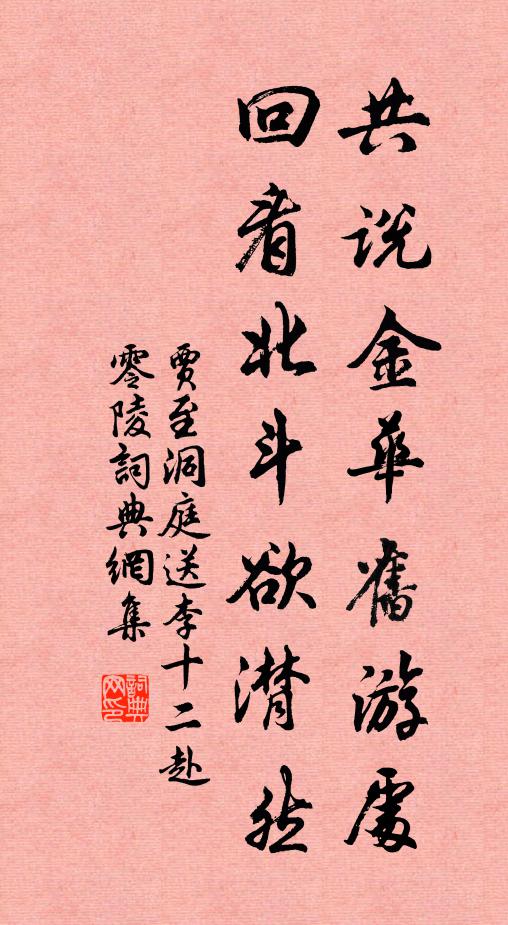 共说金華舊游處
回看北斗欲潸然
賈至洞庭送李十二赴
零陵詞典網集
詞典網印